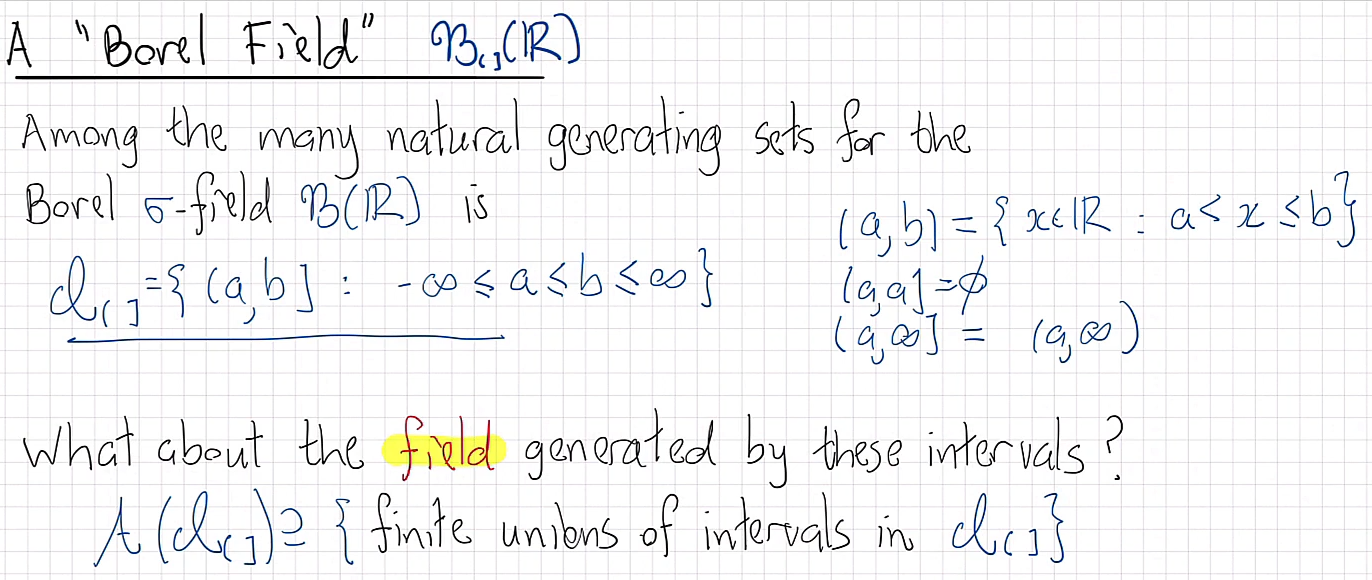 A "Borel Field" 𝓑₍₎(ℝ)
Among the many natural generating sets for the
Borel σ-field 𝓑(ℝ) is
𝒥₍] = { (a,b] : -∞ ≤ a ≤ b ≤ ∞ }
(a,b] = { x∈ℝ : a < x ≤ b }
(a,a] = ∅
(a,∞] = (a,∞)
What about the field generated by these intervals?
𝒜(𝒥₍]) ⊇ { finite unions of intervals in 𝒥₍] }